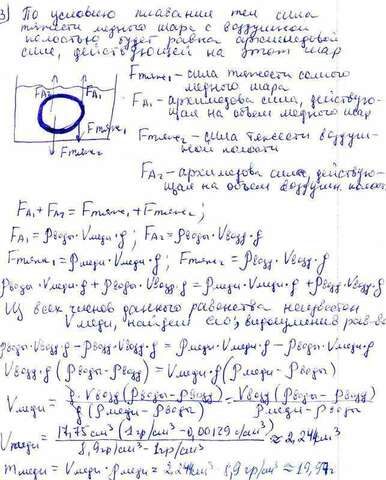 3) По условию плавания тел сила
тяжести медного шара с воздушной
полостью будет равна архимедовой
силе, действующей на этот шар
Fтяж₁ - сила тяжести самого
медного шара
FA₁ - архимедова сила, действую-
щая на объем медного шар
Fтяж₂ - сила тяжести воздуш-
ной полости
FA₂ - архимедова сила, действую-
щая на объем воздушн. полос
FA₂ FA₁
Fтяж₁
Fтяж₂
FA₁ + FA₂ = Fтяж₁ + Fтяж₂;
FA₁ = ρводы · Vмеди · g; FA₂ = ρводы · Vвозд · g
Fтяж₁ = ρмеди · Vмеди · g; Fтяж₂ = ρвозд · Vвозд · g
ρводы · Vмеди · g + ρводы · Vвозд · g = ρмеди · Vмеди · g + ρвозд · Vвозд · g
Из всех членов данного равенства неизвестен
Vмеди, найдем его, видоизменив рав-во
ρводы · Vвозд · g - ρвозд · Vвозд · g = ρмеди · Vмеди · g - ρводы · Vмеди · g
Vвозд · g (ρводы - ρвозд) = Vмеди · g (ρмеди - ρводы)
Vмеди = g · Vвозд (ρводы - ρвозд) / g (ρмеди - ρводы) = Vвозд (ρводы - ρвозд) / ρмеди - ρводы
Vмеди = 17,75 см³ (1 гр/см³ - 0,00129 г/см³) / 8,9 гр/см³ - 1 гр/см³ ≈ 2,24 см³
mмеди = Vмеди · ρмеди = 2,24 см³ · 8,9 гр/см³ ≈ 19,97г